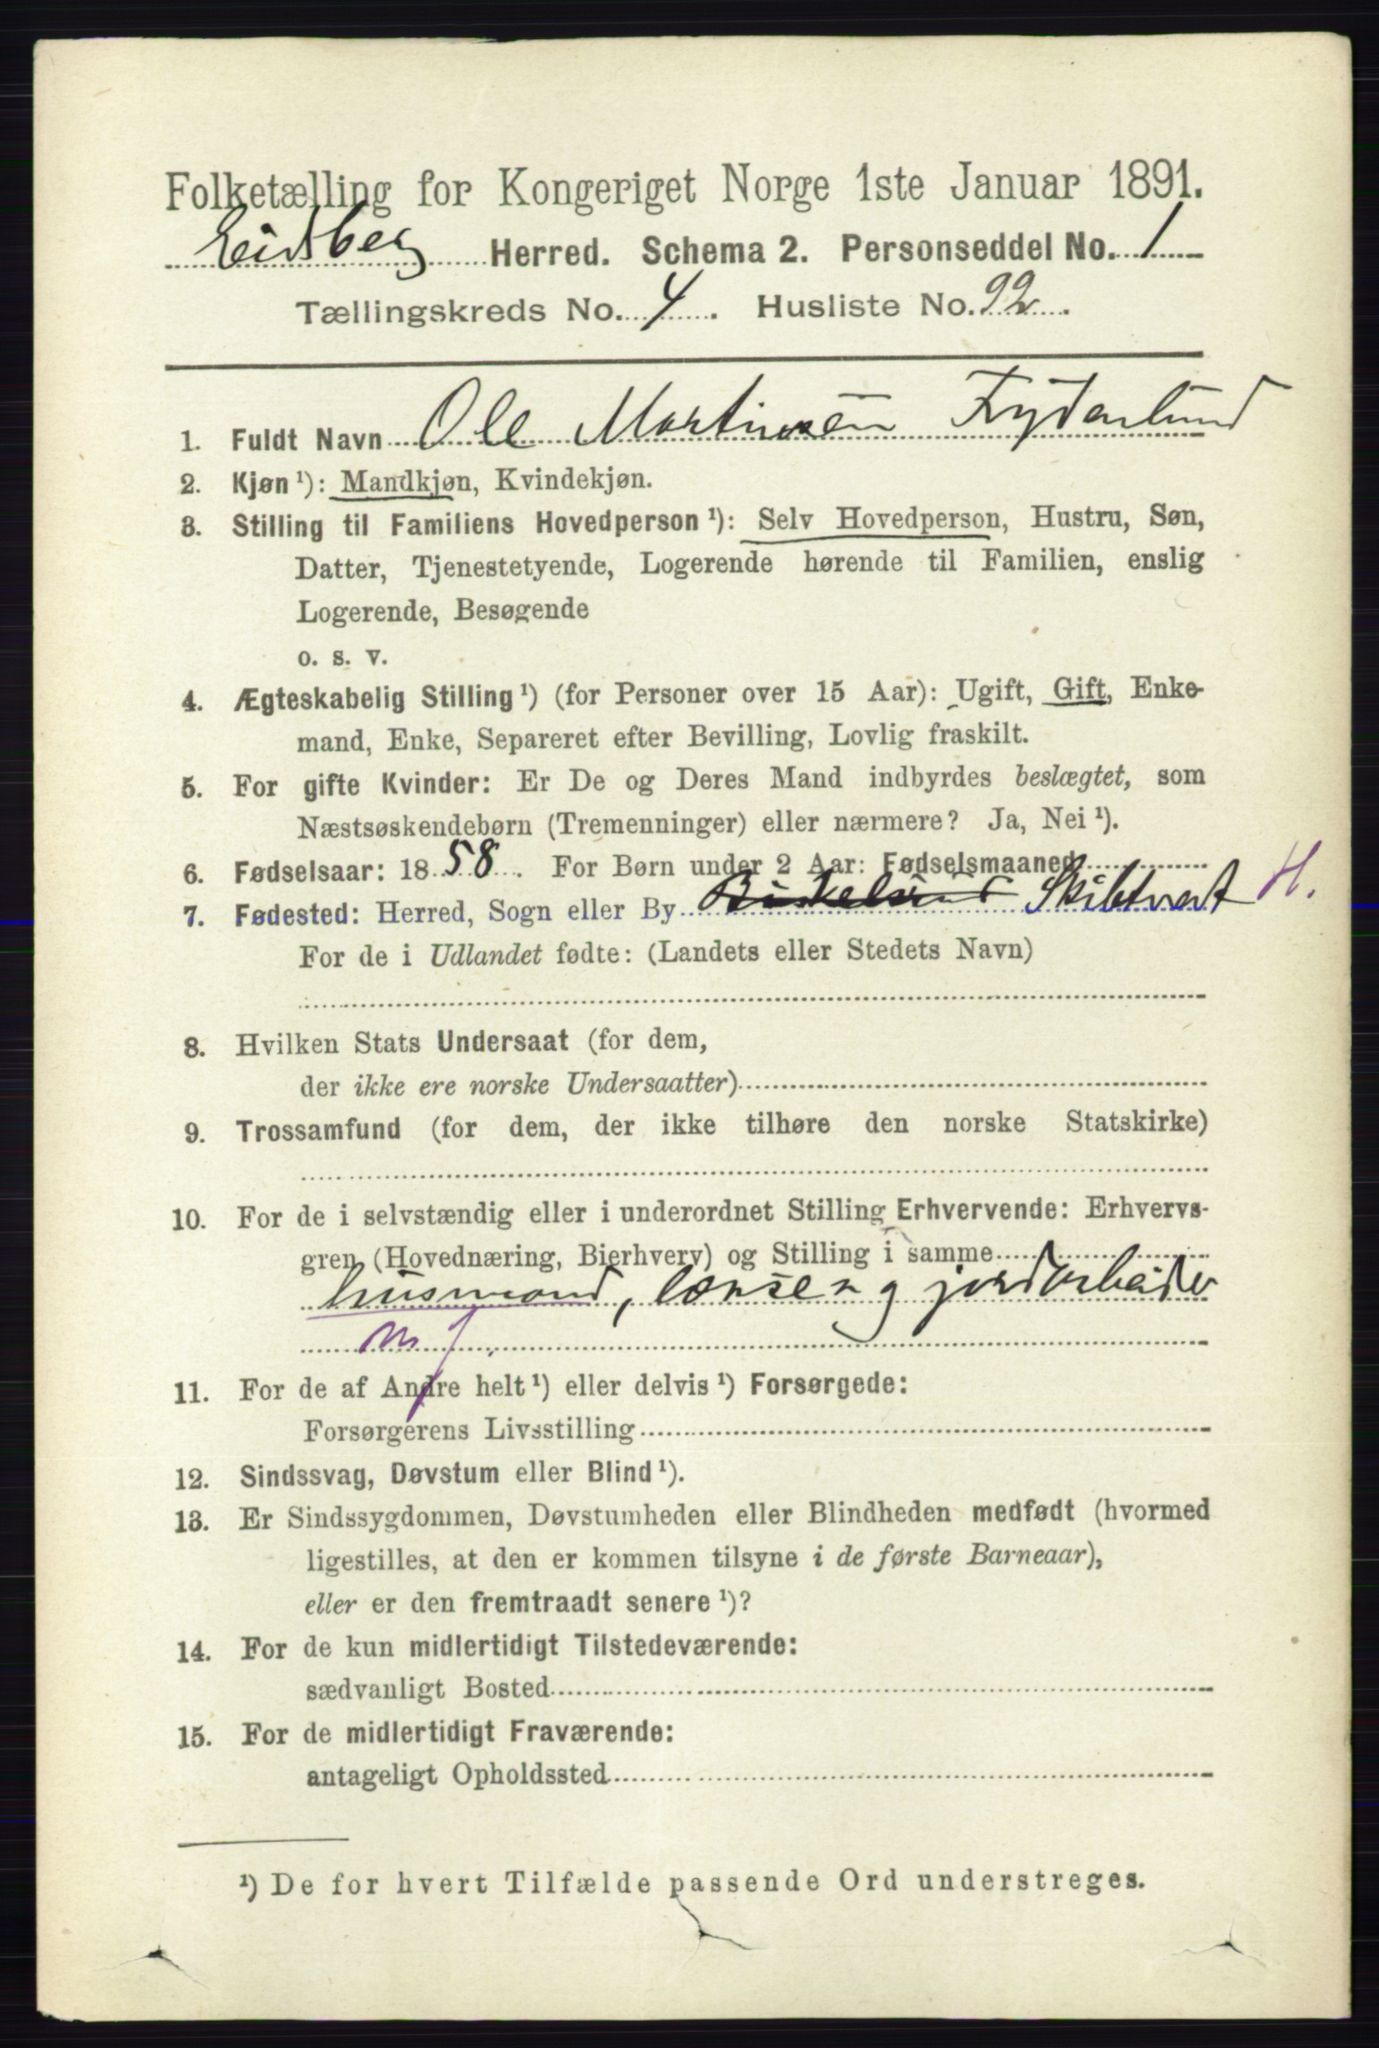 Folketælling for Kongeriget Norge 1ste Januar 1891.
Eidsberg Herred. Schema 2. Personseddel No. 1
Tællingskreds No. 4. Husliste No. 92.
1. Fuldt Navn Ole Martinsen Frydenlund
2. Kjøn ¹): Mandkjøn, Kvindekjøn.
3. Stilling til Familiens Hovedperson ¹): Selv Hovedperson, Hustru, Søn,
Datter, Tjenestetyende, Logerende hørende til Familien, enslig
Logerende, Besøgende
o. s. v.
4. Ægteskabelig Stilling ¹) (for Personer over 15 Aar): Ugift, Gift, Enke-
mand, Enke, Separeret efter Bevilling, Lovlig fraskilt.
5. For gifte Kvinder: Er De og Deres Mand indbyrdes beslægtet, som
Næstsøskendebørn (Tremenninger) eller nærmere? Ja, Nei ¹).
6. Fødselsaar: 1858. For Børn under 2 Aar: Fødselsmaaned
7. Fødested: Herred, Sogn eller By Skibtvet H.
For de i Udlandet fødte: (Landets eller Stedets Navn)
8. Hvilken Stats Undersaat (for dem,
der ikke ere norske Undersaatter)
9. Trossamfund (for dem, der ikke tilhøre den norske Statskirke)
10. For de i selvstændig eller i underordnet Stilling Erhvervende: Erhvervs-
gren (Hovednæring, Bierhverv) og Stilling i samme
husmand, lænse og jordarbeider
m f.
11. For de af Andre helt ¹) eller delvis ¹) Forsørgede:
Forsørgerens Livsstilling
12. Sindssvag, Døvstum eller Blind ¹).
13. Er Sindssygdommen, Døvstumheden eller Blindheden medfødt (hvormed
ligestilles, at den er kommen tilsyne i de første Barneaar),
eller er den fremtraadt senere ¹)?
14. For de kun midlertidigt Tilstedeværende:
sædvanligt Bosted
15. For de midlertidigt Fraværende:
antageligt Opholdssted
¹) De for hvert Tilfælde passende Ord understreges.